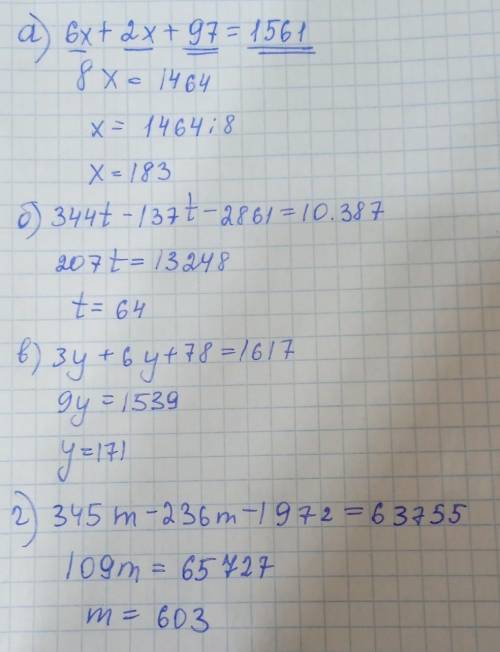 а) 6x + 2x + 97 = 1561
8x = 1464
x = 1464 : 8
x = 183
б) 344t - 137t - 2861 = 10.387
207t = 13248
t = 64
в) 3y + 6y + 78 = 1617
9y = 1539
y = 171
г) 345m - 236m - 1972 = 63755
109m = 65727
m = 603